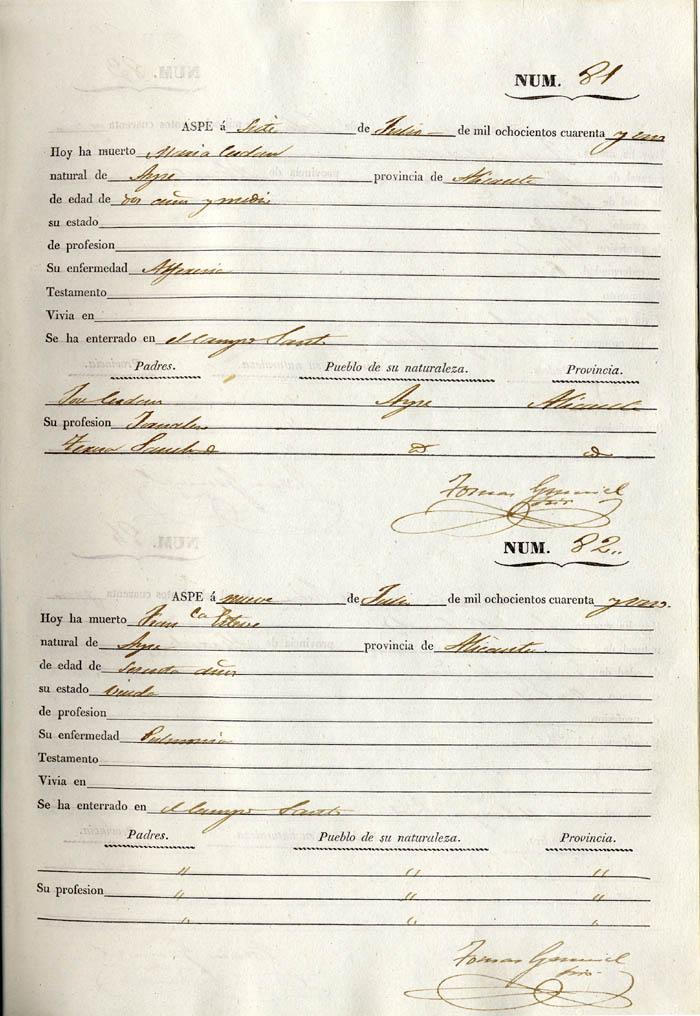 NUM. 81
ASPE á Siete de Julio de mil ochocientos cuarenta y uno
Hoy ha muerto Maria
natural de Aspe provincia de Alicante
de edad de dos años y medio
su estado
de profesion
Su enfermedad Alferecia
Testamento
Vivia en
Se ha enterrado en el Campo Santo
Padres. Pueblo de su naturaleza. Provincia.
Jose Aspe Alicante
Su profesion Jornalero
Teresa Sanchez
Tomas
NUM. 82
ASPE á nueve de Julio de mil ochocientos cuarenta y uno.
Hoy ha muerto Franca Esteve
natural de Aspe provincia de Alicante
de edad de sesenta años
su estado viuda
de profesion
Su enfermedad Pulmonia
Testamento
Vivia en
Se ha enterrado en el Campo Santo
Padres. Pueblo de su naturaleza. Provincia.
" " "
Su profesion " " "
" " "
Tomas